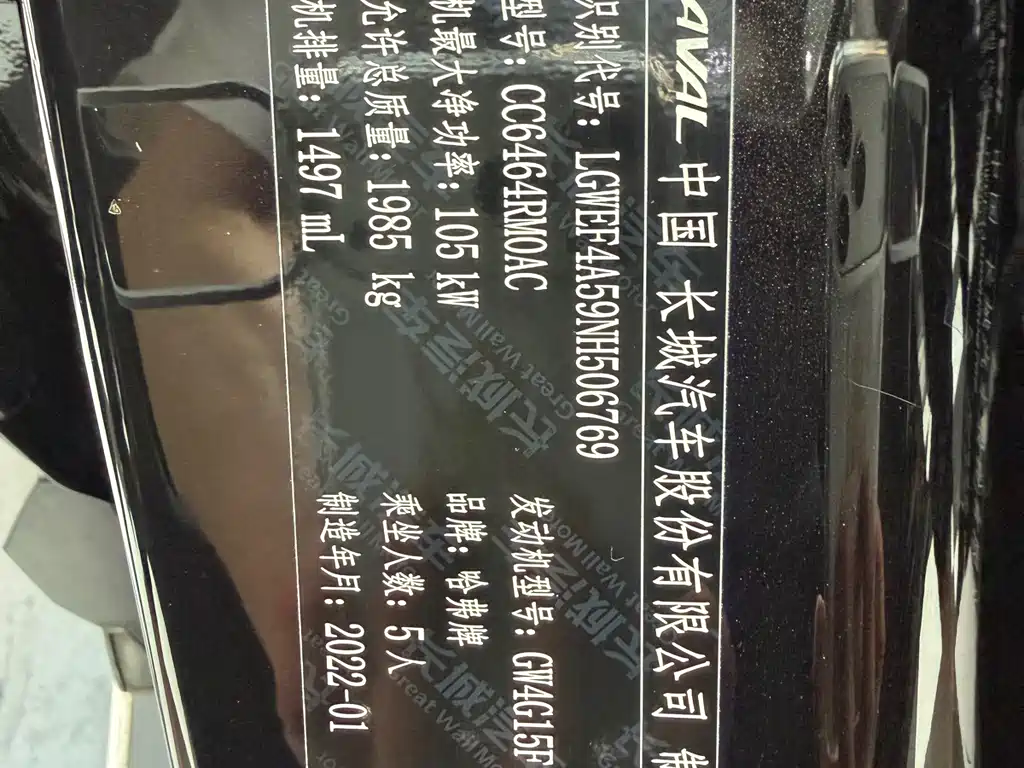 AVAL 中国长城汽车股份有限公司
识别代号: LGWEF4A59NH506769
型号: CC6464RM0AC 发动机型号: GW4G15F
机最大净功率: 105 kW 品牌: 哈弗牌
允许总质量: 1985 kg 乘坐人数: 5人
机排量: 1497 mL 制造年月: 2022-01
长城汽车
Great Wall Motor